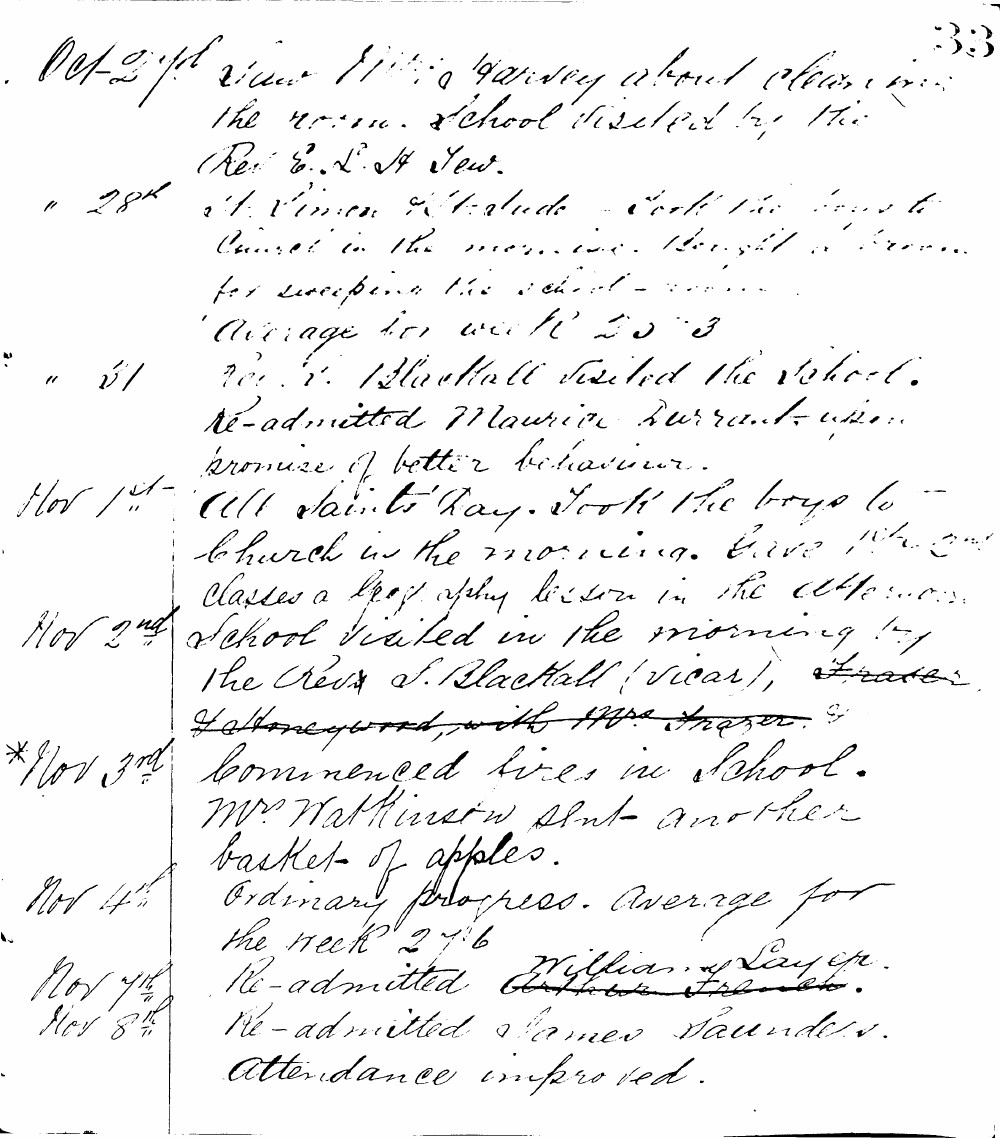 33
Oct 27th Saw Mrs Harvey about cleaning
the room. School visited by the
Rev E. L. H Tew.
" 28th St. Simon & St. Jude - Took the boys to
Church in the morning. Bought a broom
for sweeping the school-room.
Average for week 25 3
" 31 Rev. S. Blackall visited the School.
Re-admitted Maurice Durrant upon
promise of better behaviour.
Nov 1st All Saints' Day. Took the boys to
Church in the morning. Gave 1st & 2nd
classes a Geography lesson in the afternoon
Nov 2nd School visited in the morning by
the Revs S. Blackall (Vicar), Fraser
& Honeywood, with Mrs Frazer. &
*Nov 3rd Commenced fires in School.
Mrs Watkinson sent another
basket of apples.
Nov 4th Ordinary progress. Average for
the week 27 6
William Layer.
Nov 7th Re-admitted Arthur French.
Nov 8th Re-admitted James Saunders.
Attendance improved.